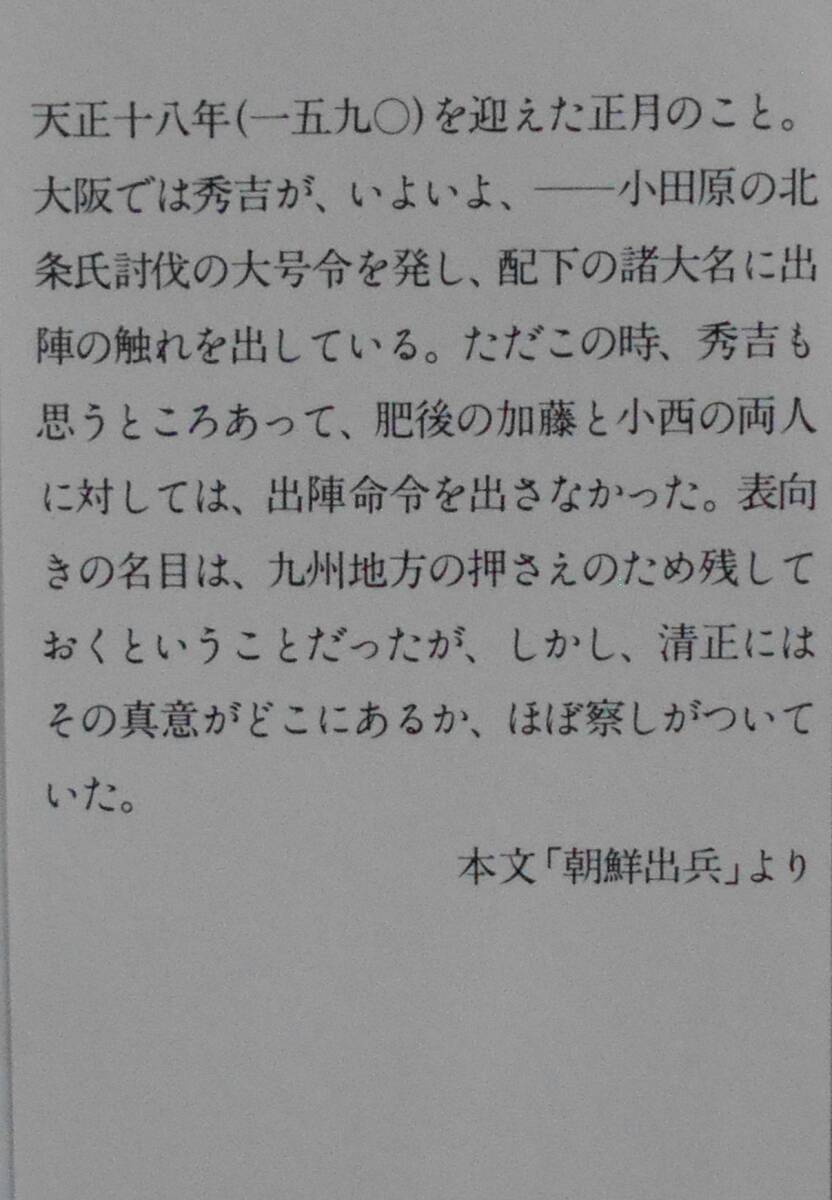 天正十八年(一五九〇)を迎えた正月のこと。
大阪では秀吉が、いよいよ、――小田原の北
条氏討伐の大号令を発し、配下の諸大名に出
陣の触れを出している。ただこの時、秀吉も
思うところあって、肥後の加藤と小西の両人
に対しては、出陣命令を出さなかった。表向
きの名目は、九州地方の押さえのため残して
おくということだったが、しかし、清正には
その真意がどこにあるか、ほぼ察しがついて
いた。
本文「朝鮮出兵」より